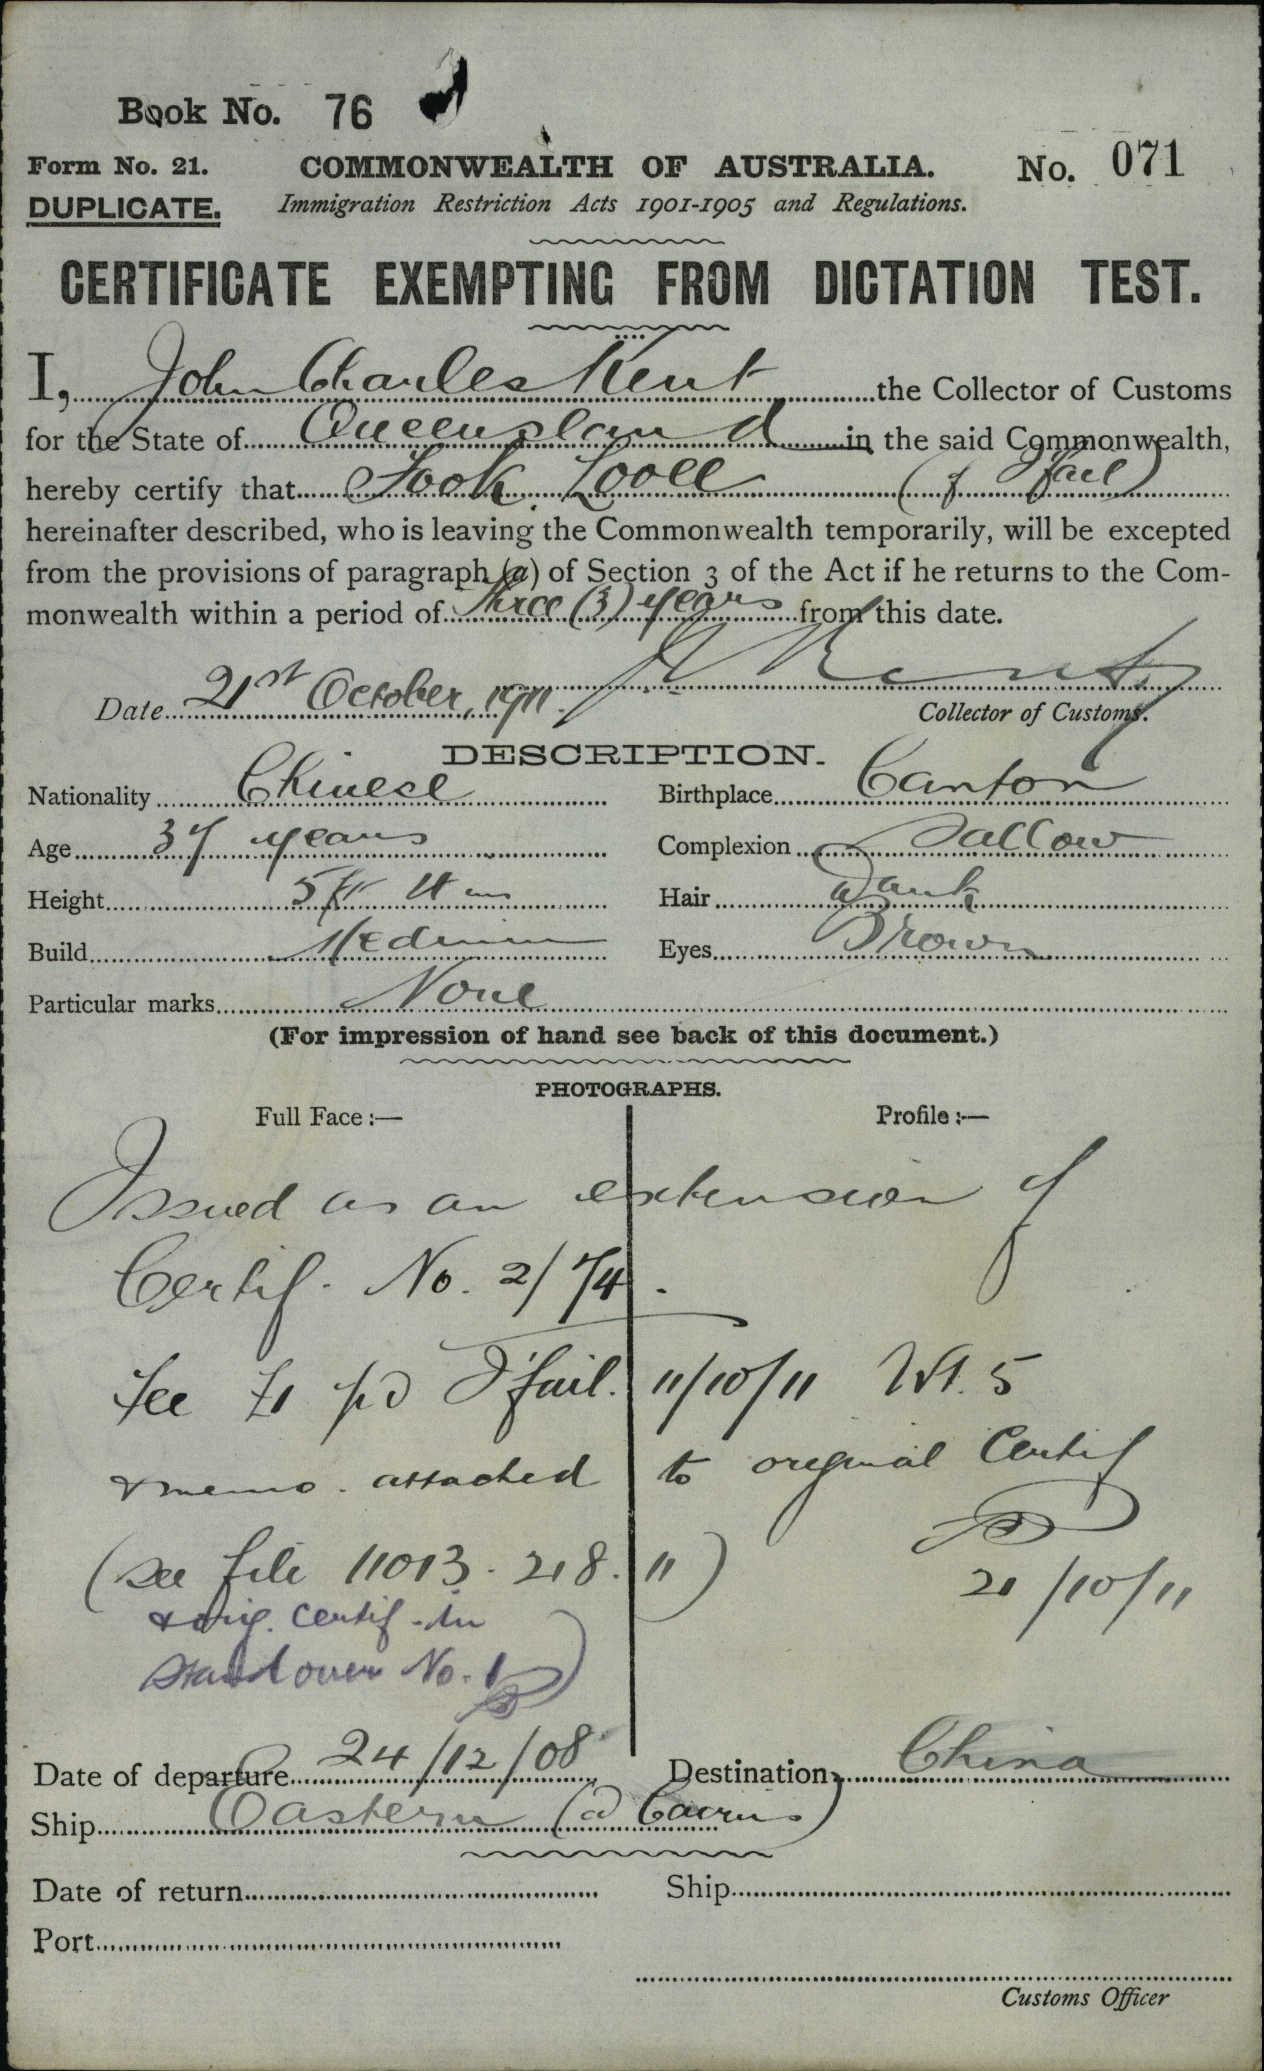 Book No. 76
Form No. 21. COMMONWEALTH OF AUSTRALIA. No. 071
DUPLICATE. Immigration Restriction Acts 1901-1905 and Regulations.
CERTIFICATE EXEMPTING FROM DICTATION TEST.
I, John Charles Kent the Collector of Customs
for the State of Queensland in the said Commonwealth,
hereby certify that Fook Looee (of I'fail)
hereinafter described, who is leaving the Commonwealth temporarily, will be excepted
from the provisions of paragraph (a) of Section 3 of the Act if he returns to the Com-
monwealth within a period of three (3) years from this date.
Date 21st October, 1911. Kent
Collector of Customs.
DESCRIPTION.
Nationality Chinese Birthplace Canton
Age 37 years Complexion Sallow
Height 5 ft 4 ins Hair Dark
Build Medium Eyes Brown
Particular marks None
(For impression of hand see back of this document.)
PHOTOGRAPHS.
Full Face :— Profile :—
Issued as an extension of
Certif. No. 2/74.
Fee £1 pd I'fail. 11/10/11 5
& memo. attached to original Certif
(see file 11013. 218. 11) 21/10/11
& orig. certif. in
Stand over No. 1)
Date of departure 24/12/08 Destination China
Ship Eastern (@ Cairns)
Date of return Ship
Port
Customs Officer